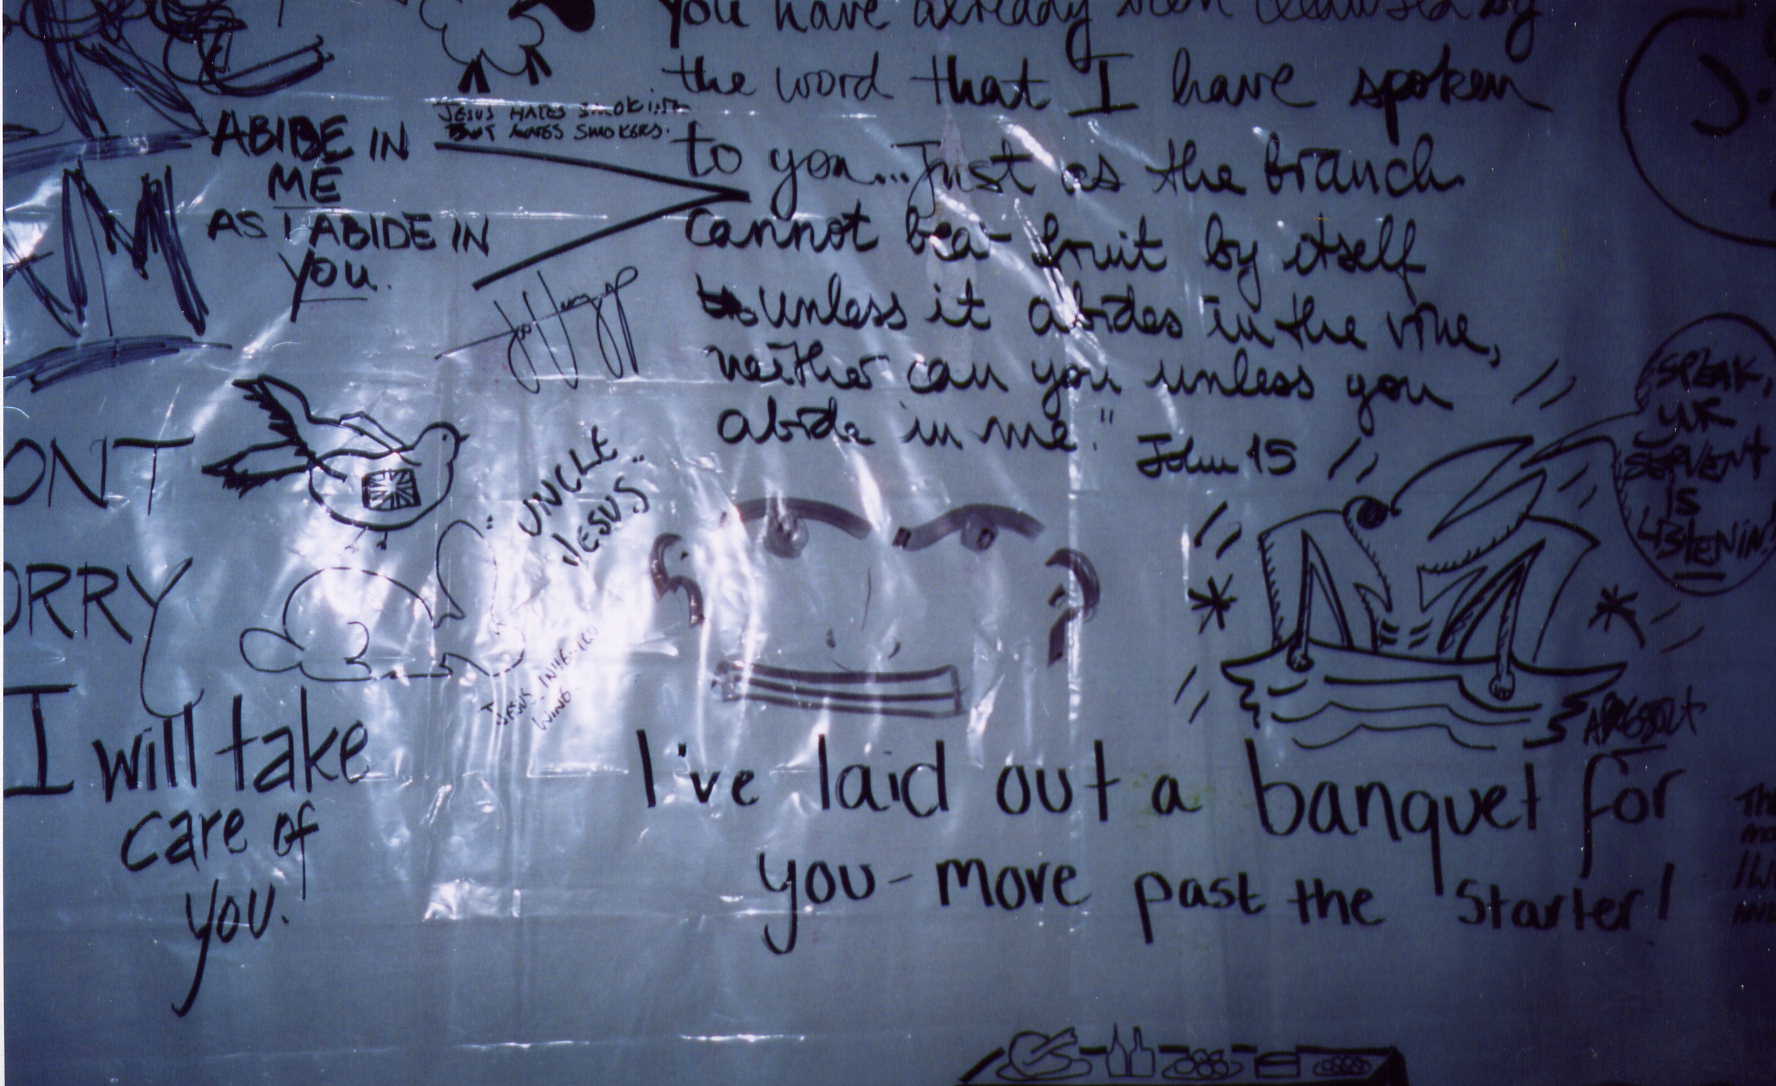 you have already been cleansed by
the word that I have spoken
to you... Just as the branch
cannot bear fruit by itself
unless it abides in the vine,
neither can you unless you
abide in me."
John 15
ABIDE IN
ME
AS I ABIDE IN
YOU.
JESUS HATES SMOKING
BUT LOVES SMOKERS.
UNCLE
JESUS
ONT
ORRY
I will take
care of
you.
SPEAK,
UR
SERVENT
IS
LISTENIN!
I've laid out a banquet for
you - move past the starter!